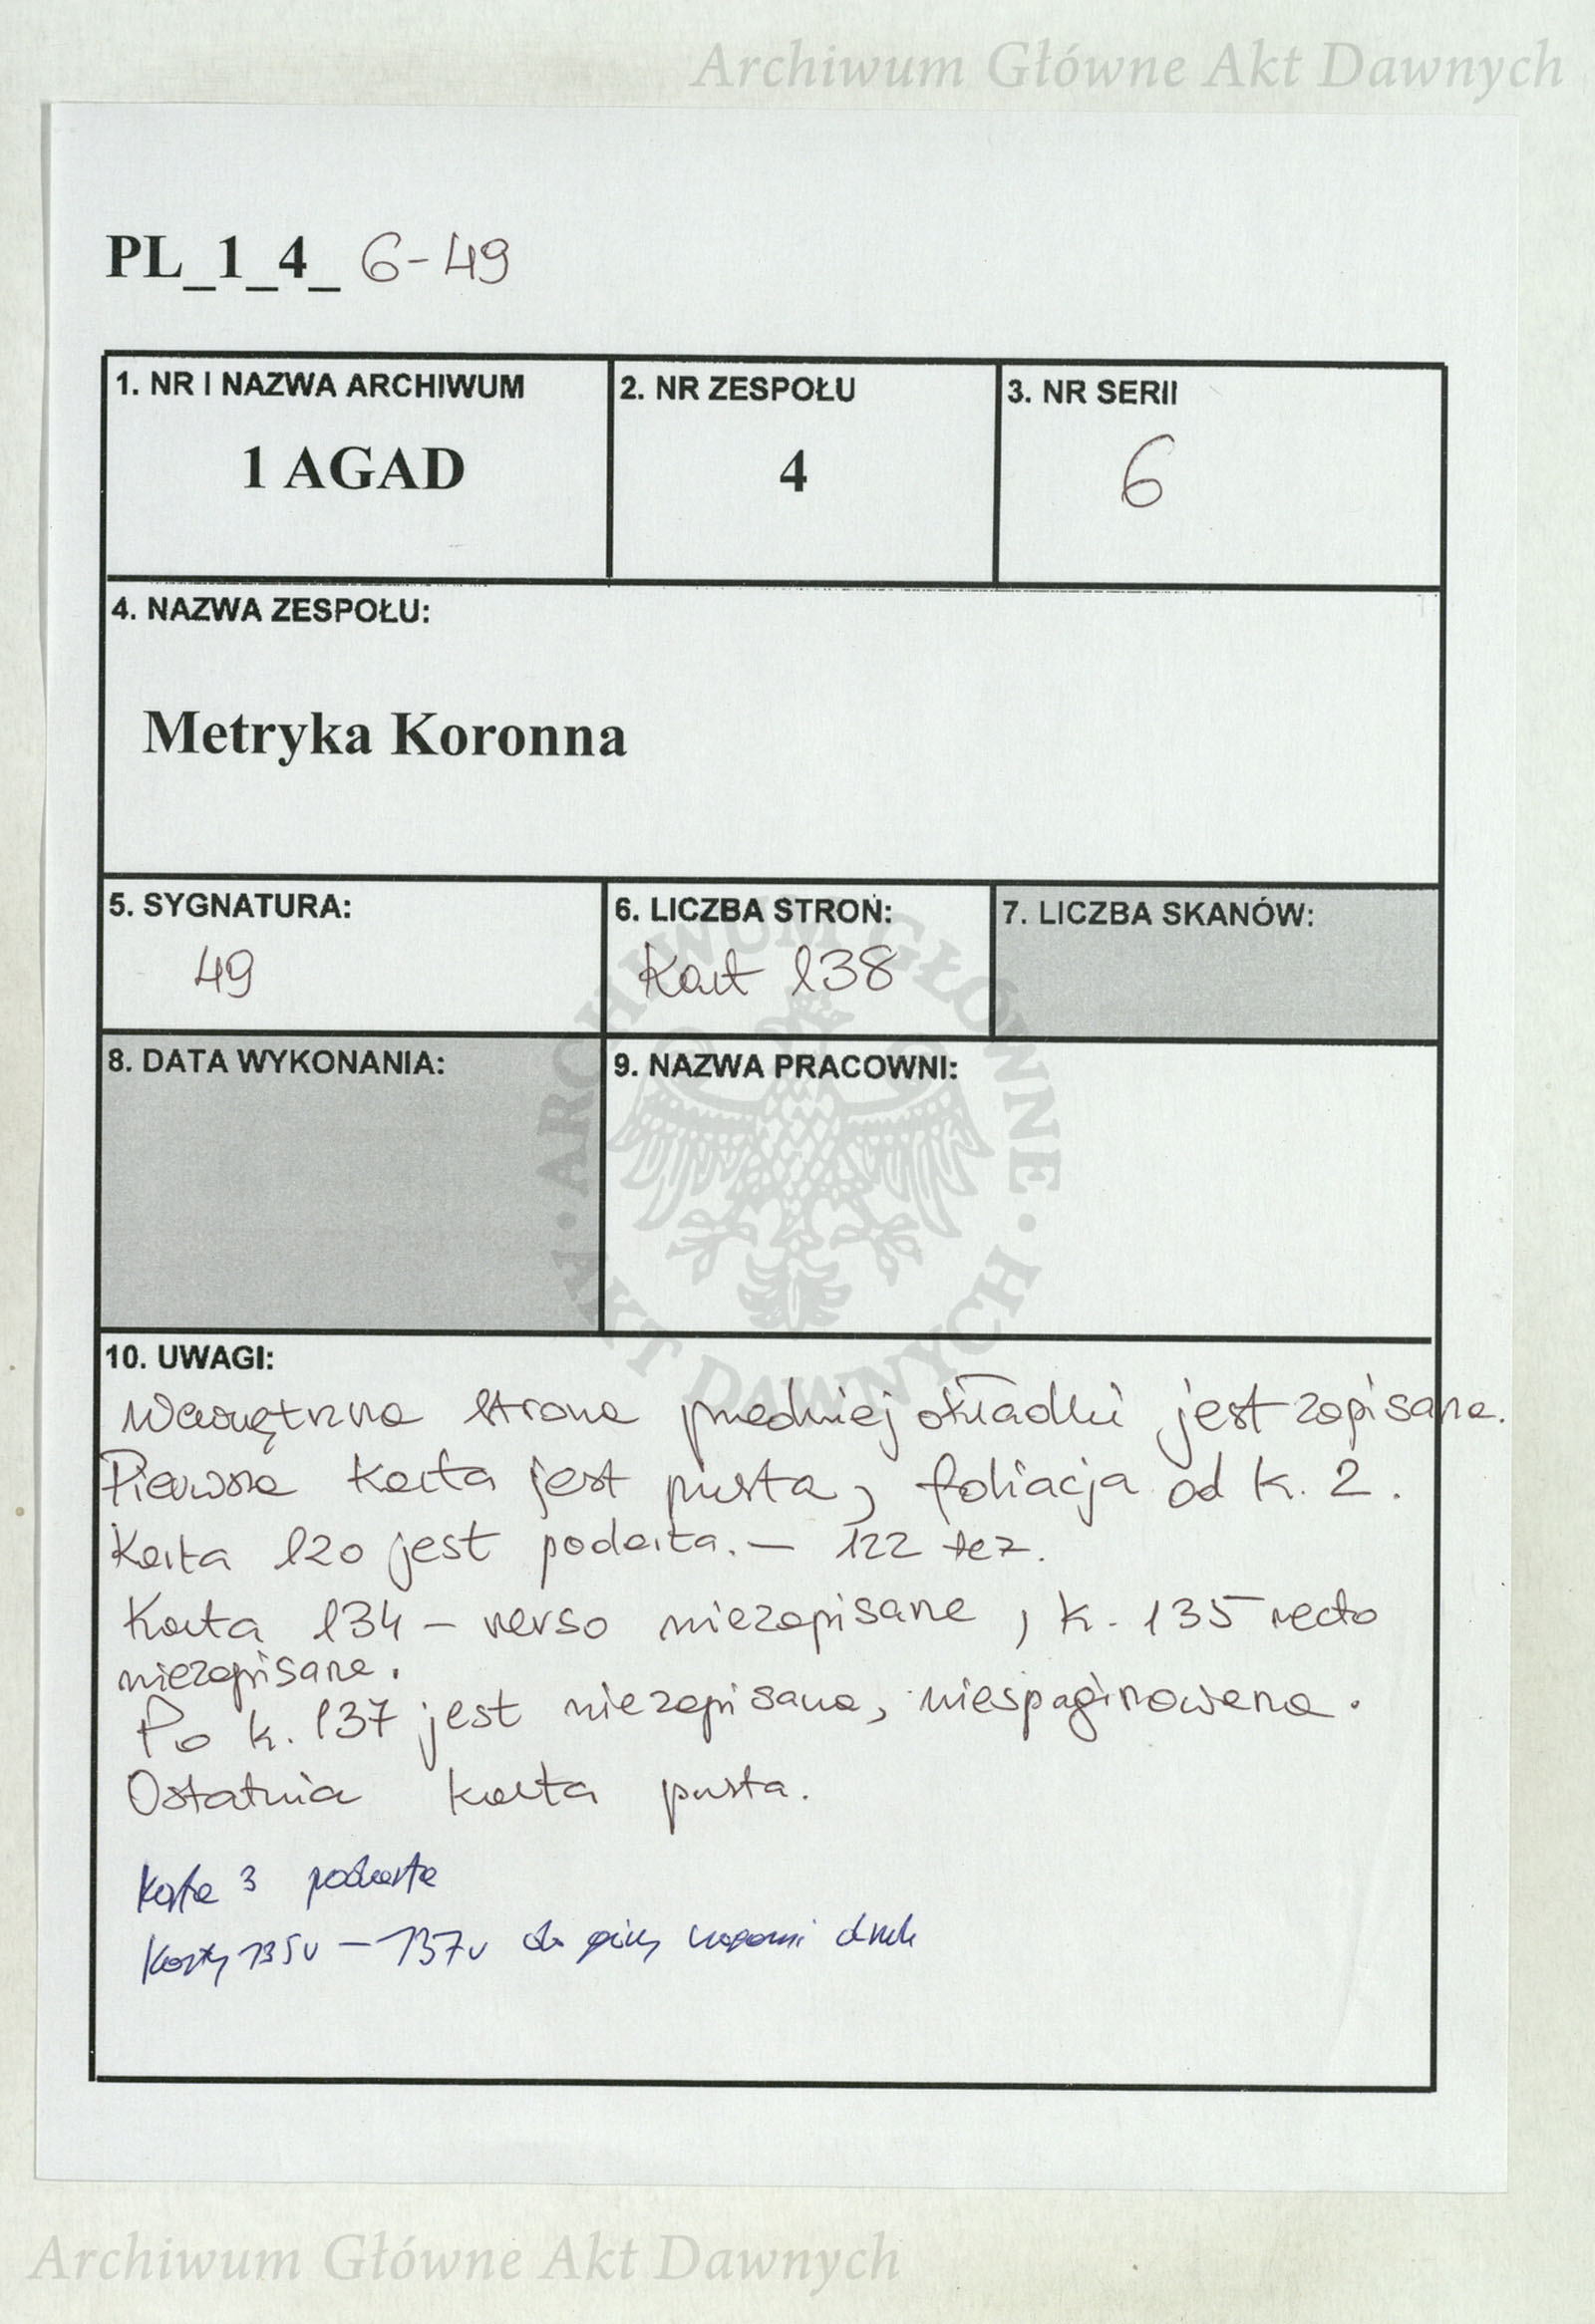 Archiwum Główne Akt Dawnych
PL_1_4_ 6-49
1. NR I NAZWA ARCHIWUM
1 AGAD
2. NR ZESPOŁU
4
3. NR SERII
6
4. NAZWA ZESPOŁU:
Metryka Koronna
5. SYGNATURA:
49
6. LICZBA STRON:
Kart 138
7. LICZBA SKANÓW:
8. DATA WYKONANIA:
9. NAZWA PRACOWNI:
ARCHIWUM GŁÓWNE · AKT DAWNYCH ·
10. UWAGI:
Wewnętrzna strona przedniej okładki jest zapisana.
Pierwsza karta jest pusta, foliacja od k. 2.
Karta 120 jest podarta. – 122 też.
Karta 134 – verso niezapisane, k. 135 recto
niezapisane.
Po k. 137 jest niezapisana, niespaginowana.
Ostatnia karta pusta.
Karta 3 podarta
Karty 135v – 137v do góry nogami druk
Archiwum Główne Akt Dawnych